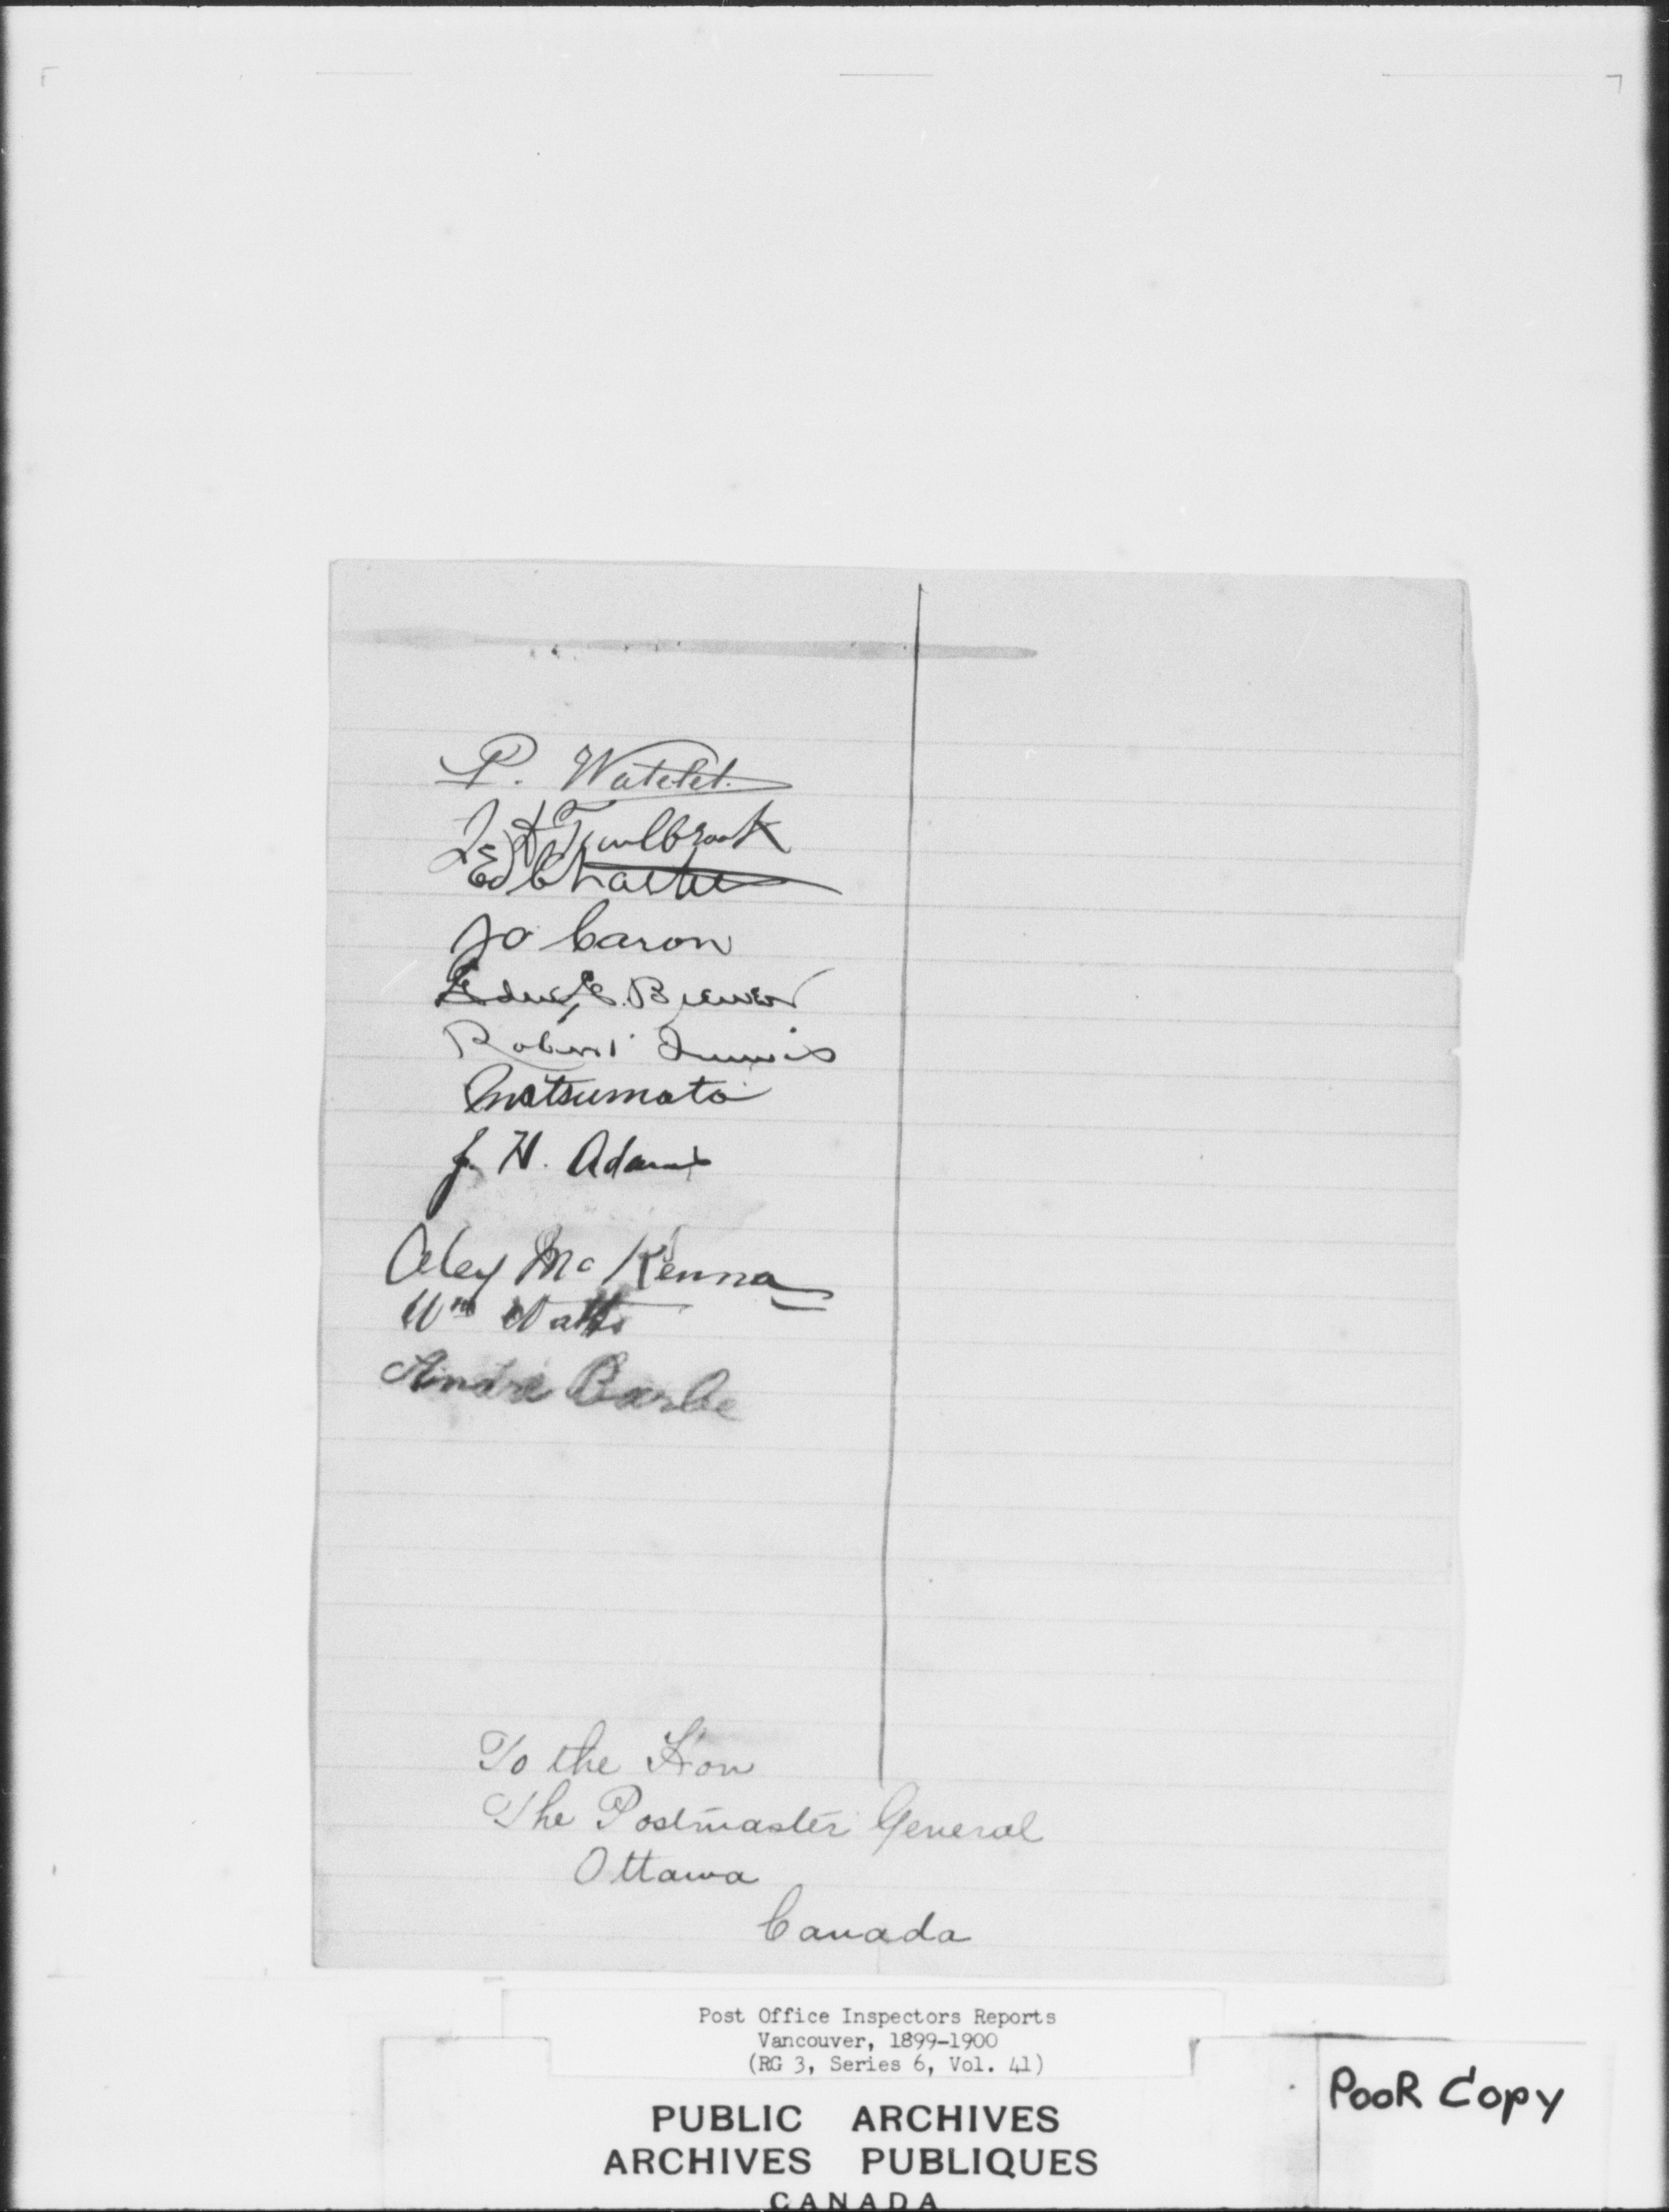 P. Watelet.
Ed Charter
Jo Caron
Edw. E. Brewer
Robert
Matsumoto
J. H. Adams
Alex McKenna
Wm Watts
Andre Barbe
To the Hon
The Postmaster General
Ottawa
Canada
Post Office Inspectors Reports
Vancouver, 1899-1900
(RG 3, Series 6, Vol. 41)
PooR Copy
PUBLIC ARCHIVES
ARCHIVES PUBLIQUES
CANADA